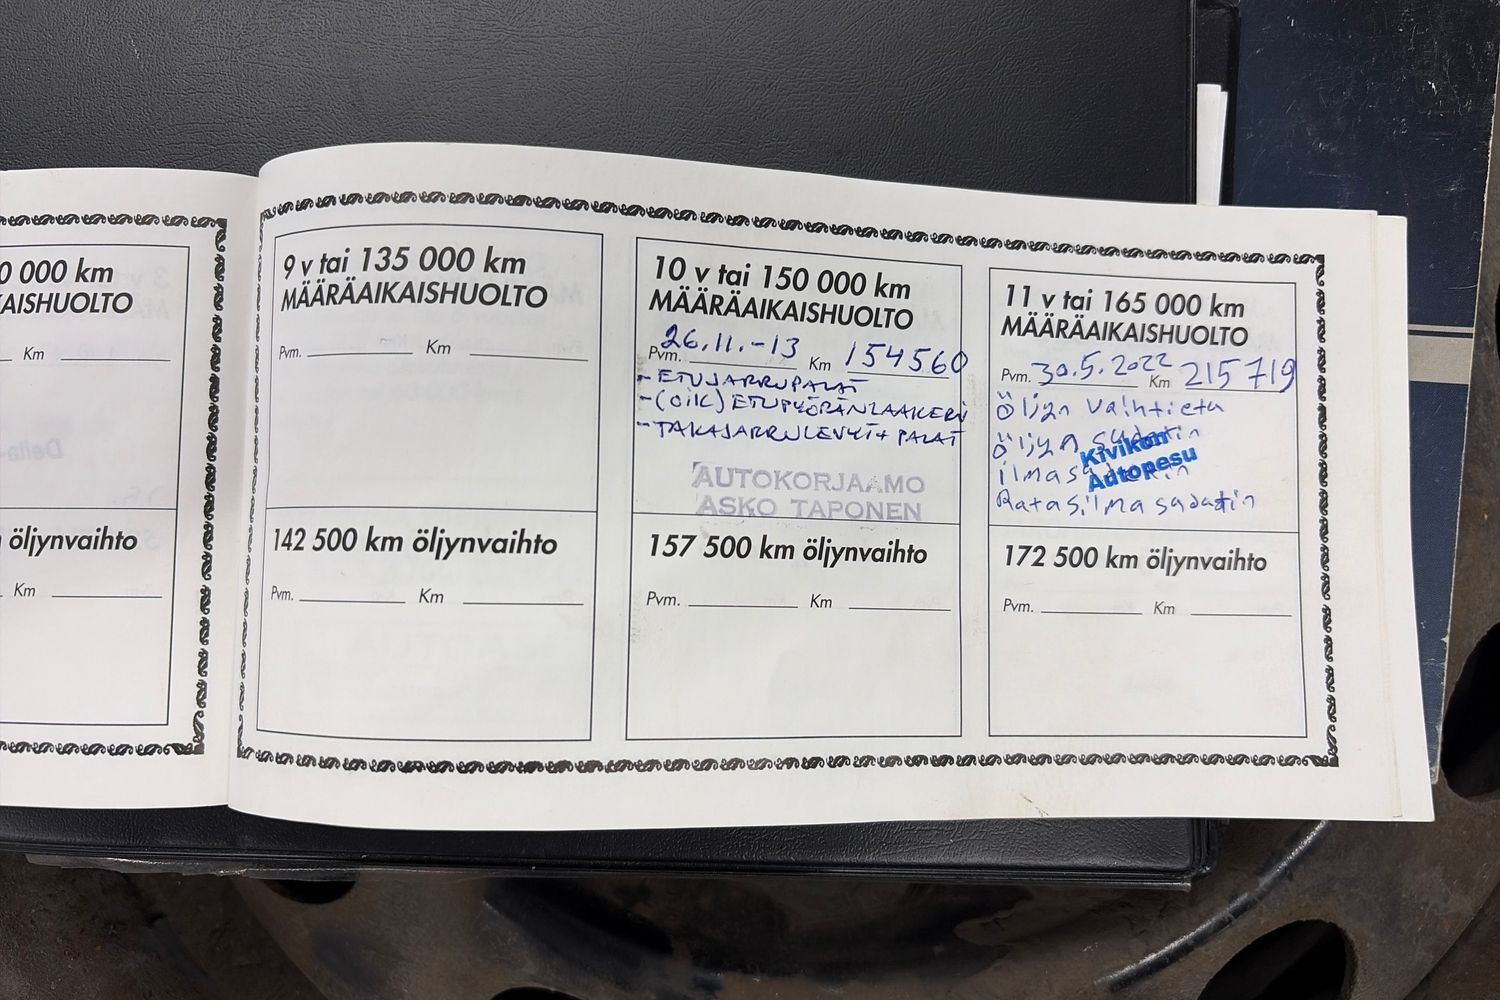 0 000 km
KAISHUOLTO
Km
öljynvaihto
Km
9 v tai 135 000 km
MÄÄRÄAIKAISHUOLTO
Pvm. Km
142 500 km öljynvaihto
Pvm. Km
10 v tai 150 000 km
MÄÄRÄAIKAISHUOLTO
Pvm. 26.11.-13 Km 154560
- ETUJARRUPALAT
- (OIK) ETUPYÖRÄNLAAKERI
- TAKAJARRULEVYT+ PALAT
AUTOKORJAAMO
ASKO TAPONEN
157 500 km öljynvaihto
Pvm. Km
11 v tai 165 000 km
MÄÄRÄAIKAISHUOLTO
Pvm. 30.5.2022 Km 215719
Öljyn vaihtietu
Öljyn sudatin
ilmasudatin
Ratasilmasudatin
Kivikon
Autopesu
172 500 km öljynvaihto
Pvm. Km